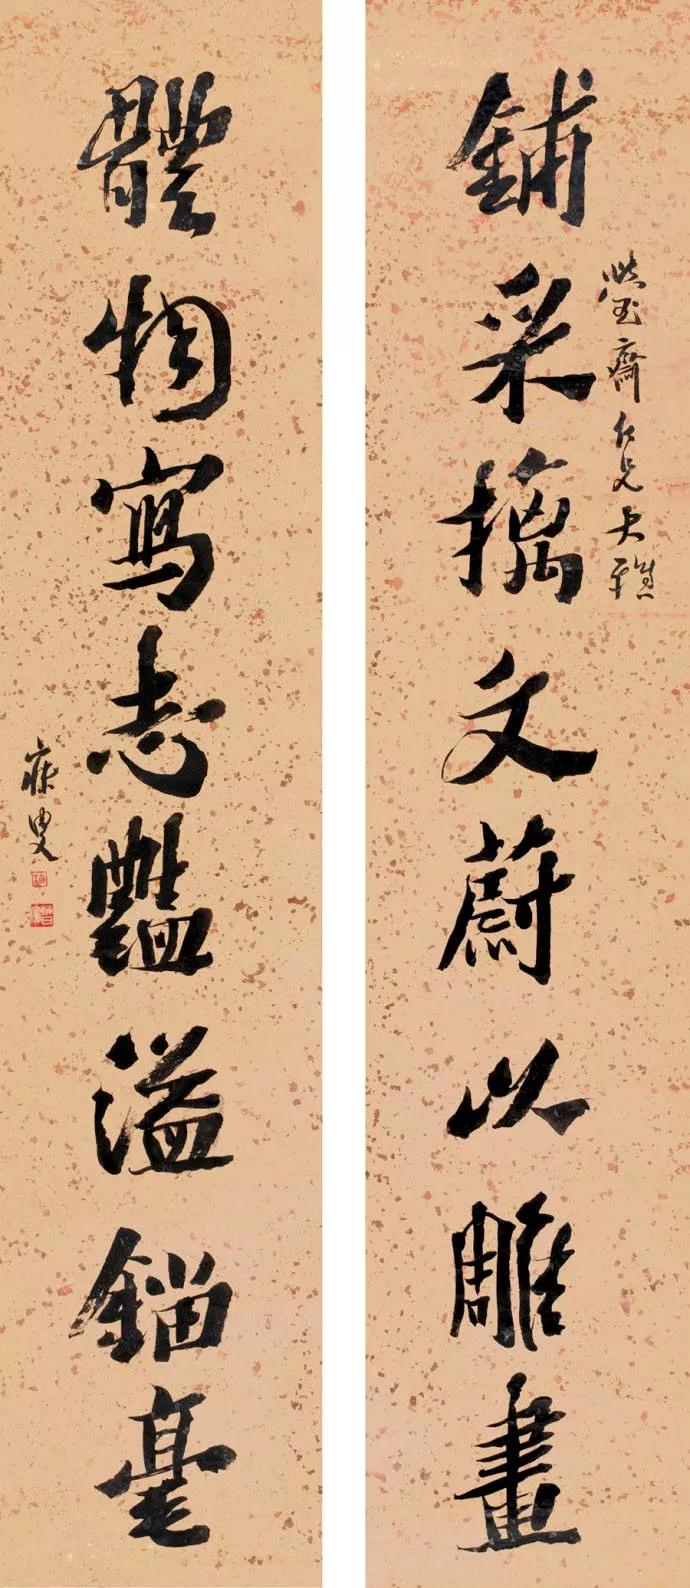 齋仁兄大雅
鋪采摛文蔚以雕畫
體物寫志豔溢錙毫
寐叟